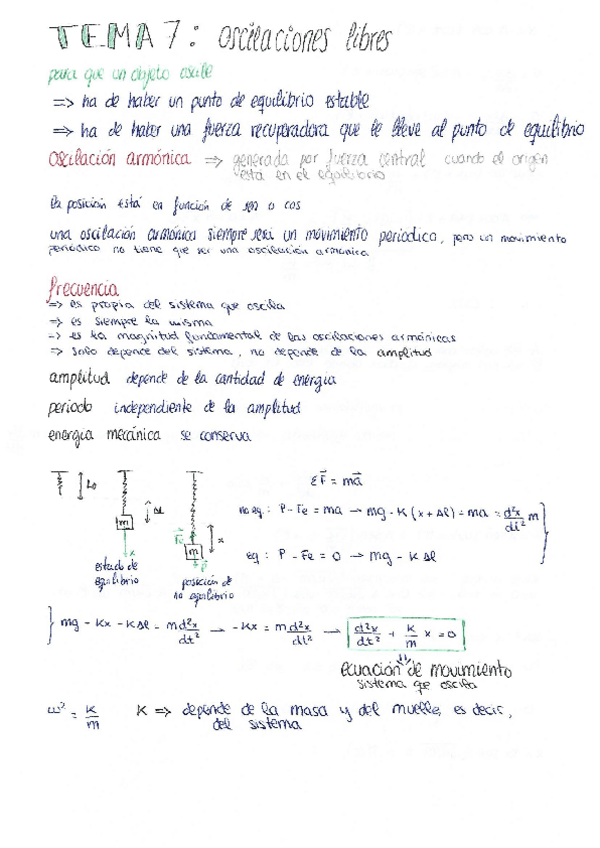 TEMA 7: oscilaciones libres
para que un objeto oscile
=> ha de haber un punto de equilibrio estable
=> ha de haber una fuerza recuperadora que le lleve al punto de equilibrio
oscilación armónica => generada por fuerza central cuando el origen
está en el equilibrio
la posición está en función de sen o cos
una oscilación armónica siempre será un movimiento periodico, pero un movimiento
periódico no tiene que ser una oscilación armónica
frecuencia
=> es propia del sistema que oscila
=> es siempre la misma
=> es la magnitud fundamental de las oscilaciones armónicas
=> solo depende del sistema, no depende de la amplitud
amplitud depende de la cantidad de energía
periodo independiente de la amplitud
energía mecánica se conserva
L₀
Δl
m
x
Fe
m
P
x
estado de
equilibrio
posición de
no equilibrio
ΣF⃗ = ma⃗
no eq.: P - Fe = ma → mg - K(x + Δl) = ma = d²x/dt² m
eq: P - Fe = 0 → mg - K Δl
mg - Kx - KΔl = m d²x/dt² → -Kx = m d²x/dt² → d²x/dt² + K/m x = 0
ecuación de movimiento
sistema que oscila
ω² = K/m K => depende de la masa y del muelle, es decir,
del sistema